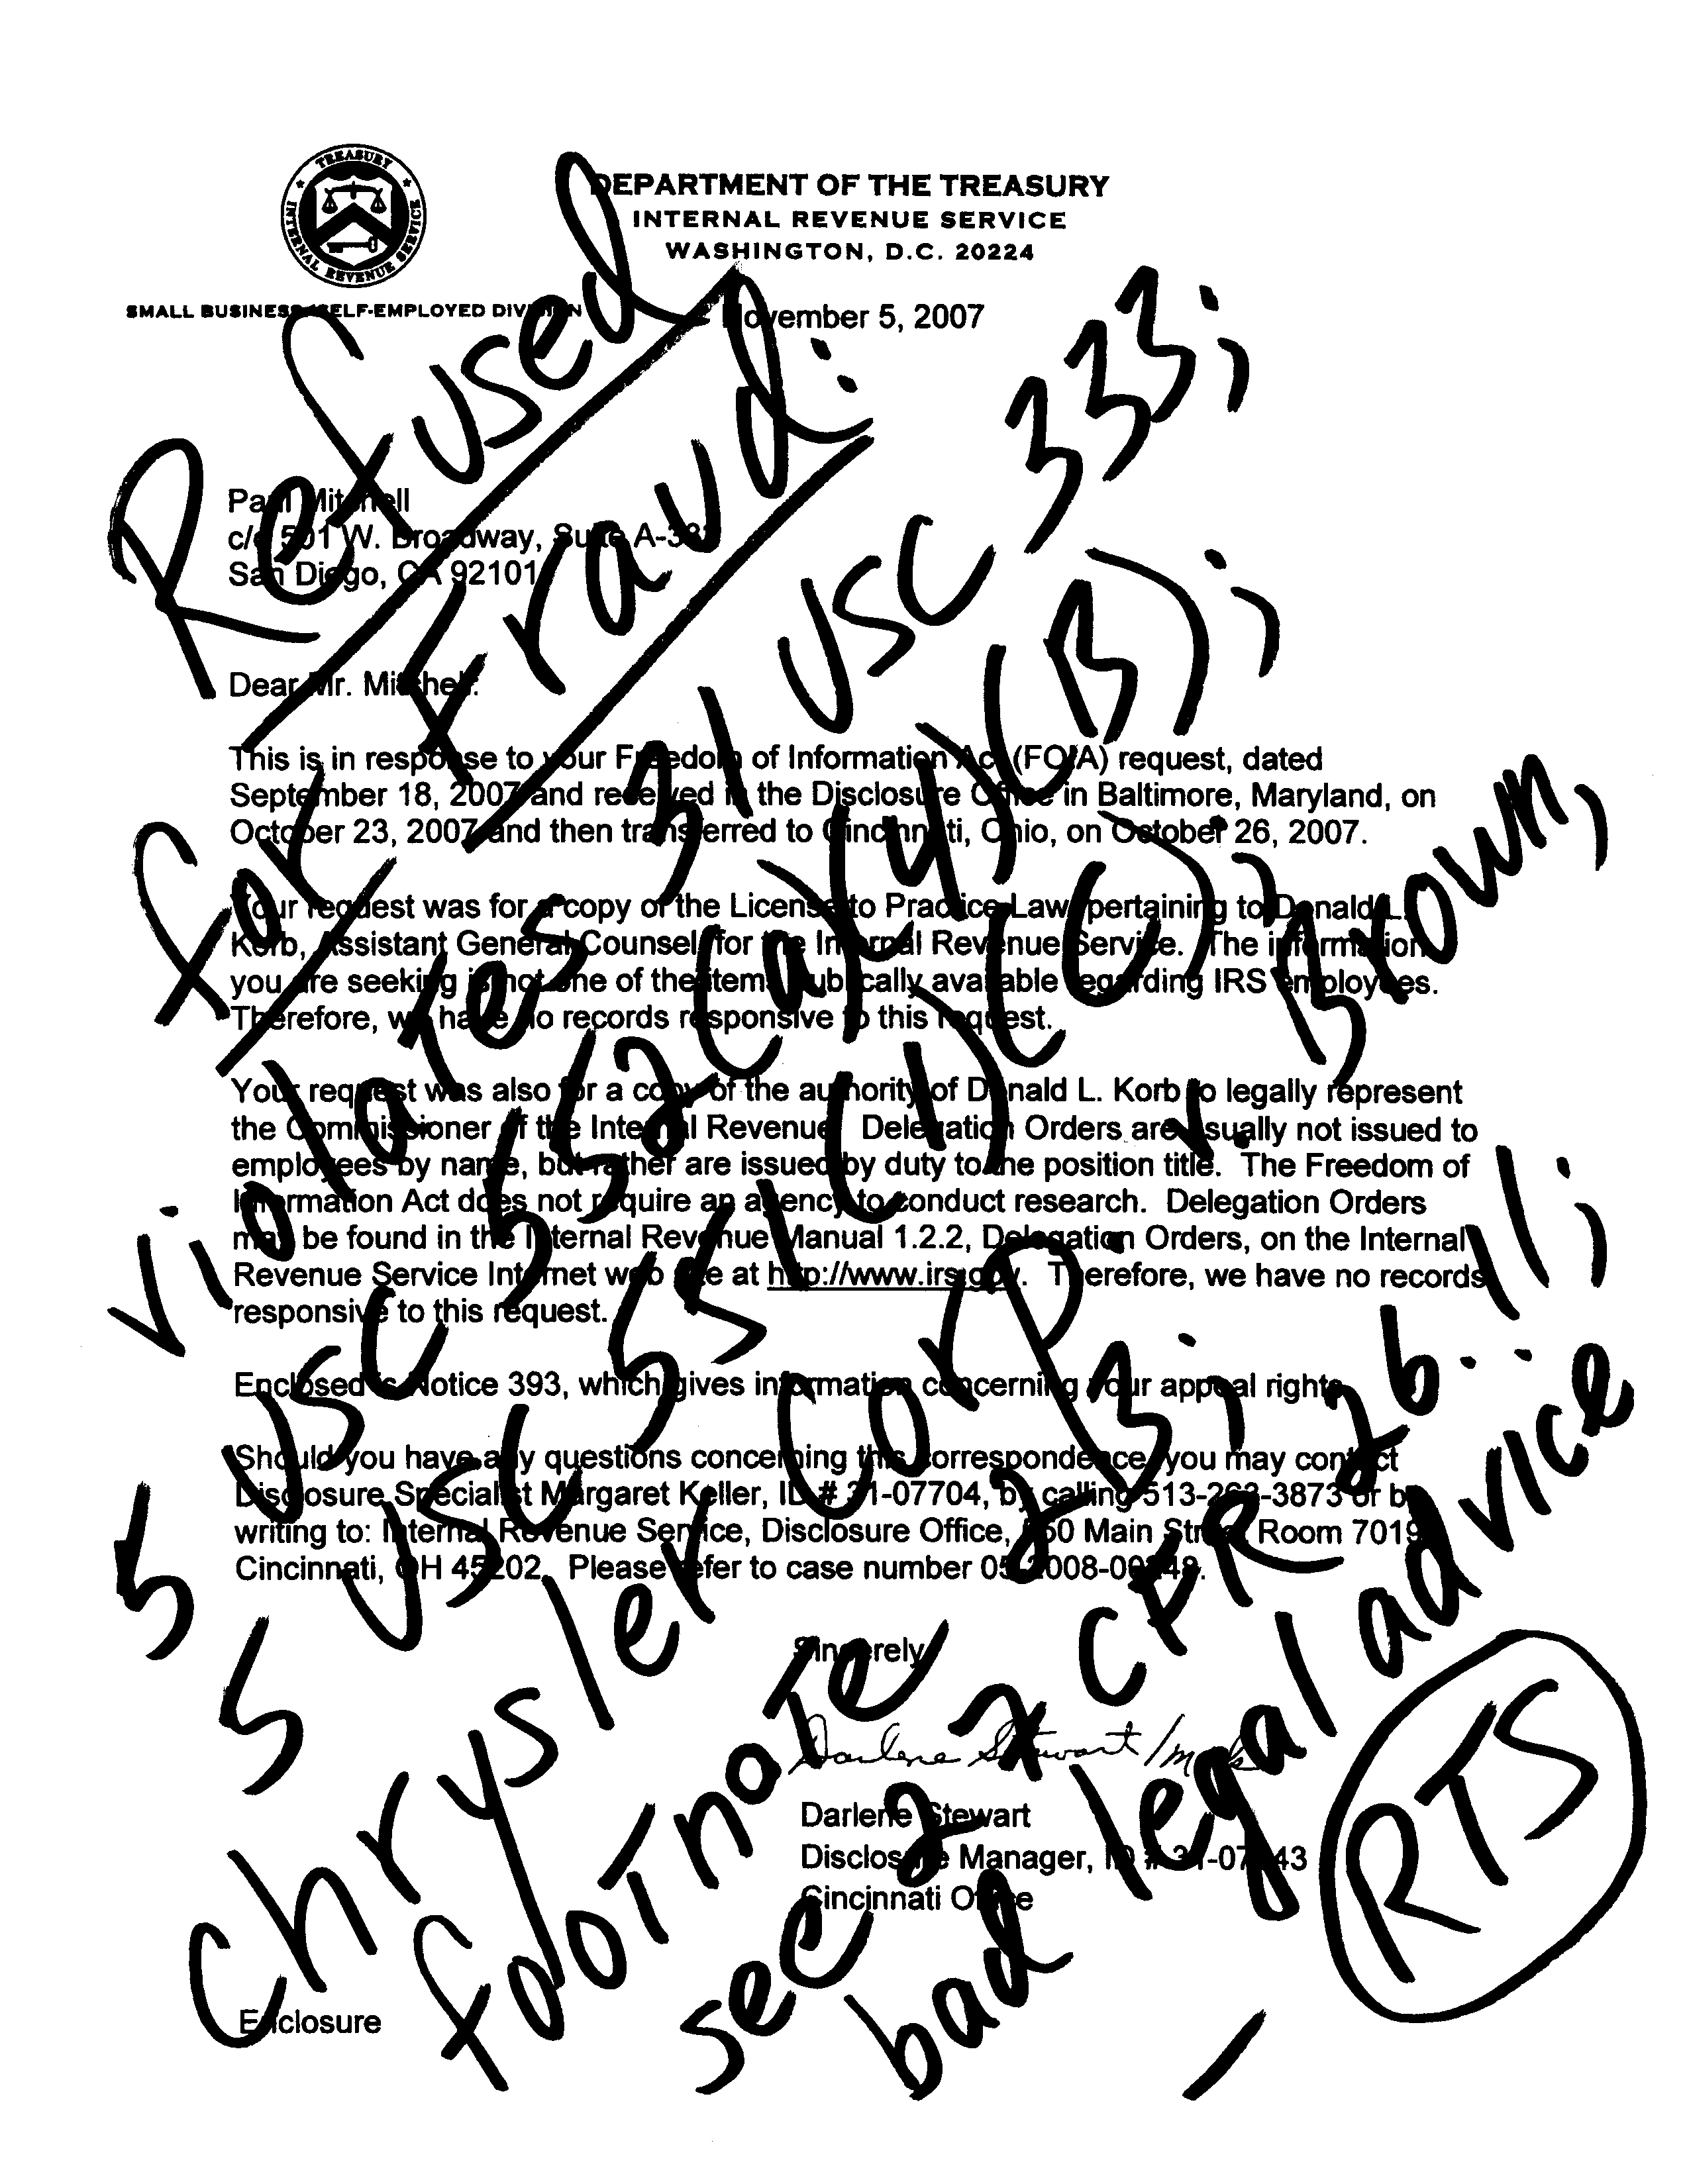 TREASURY
INTERNAL REVENUE SERVICE
DEPARTMENT OF THE TREASURY
INTERNAL REVENUE SERVICE
WASHINGTON, D.C. 20224
SMALL BUSINESS/SELF-EMPLOYED DIVISION
November 5, 2007
Paul Mitchell
c/o 501 W. Broadway, Suite A-332
San Diego, CA 92101
Dear Mr. Mitchell:
This is in response to your Freedom of Information Act (FOIA) request, dated
September 18, 2007 and received in the Disclosure Office in Baltimore, Maryland, on
October 23, 2007 and then transferred to Cincinnati, Ohio, on October 26, 2007.
Your request was for a copy of the License to Practice Law pertaining to Donald L.
Korb, Assistant General Counsel for the Internal Revenue Service. The information
you are seeking is not one of the items publically available regarding IRS employees.
Therefore, we have no records responsive to this request.
Your request was also for a copy of the authority of Donald L. Korb to legally represent
the Commissioner of the Internal Revenue. Delegation Orders are usually not issued to
employees by name, but rather are issued by duty to the position title. The Freedom of
Information Act does not require an agency to conduct research. Delegation Orders
may be found in the Internal Revenue Manual 1.2.2, Delegation Orders, on the Internal
Revenue Service Internet web site at http://www.irs.gov. Therefore, we have no records
responsive to this request.
Enclosed is Notice 393, which gives information concerning your appeal rights.
Should you have any questions concerning this correspondence, you may contact
Disclosure Specialist Margaret Keller, ID # 31-07704, by calling 513-263-3873 or by
writing to: Internal Revenue Service, Disclosure Office, 550 Main Street Room 7019
Cincinnati, OH 45202. Please refer to case number
Sincerely,
Darlene Stewart
Darlene Stewart
Disclosure Manager, ID #
Cincinnati Office
Enclosure
Refused
for Fraud:
violates 31 USC 333;
5 USC 552(a)(4)(B);
5 USC 551(1)(C);
Chrysler Corp. v. Brown,
footnote 23;
see 27 CFR 26.11;
bad legal advice
RTS